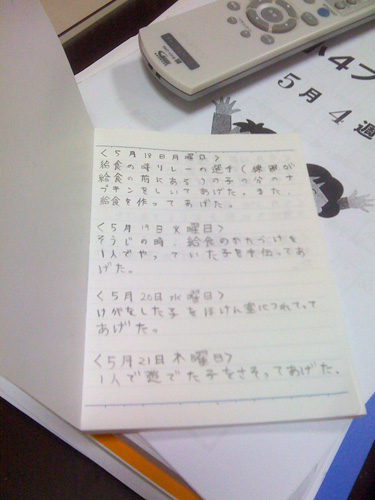 小4フ
5月4週
<5月18日月曜日>
給食の時リレーの選手(練習が
給食の前にある)の子の分のナ
プキンをしいてあげた。また
給食を作ってあげた。
<5月19日火曜日>
そうじの時、給食のかたづけを
1人でやっていた子を手伝ってあ
げた。
<5月20日水曜日>
けがをした子をほけん室につれてって
あげた。
<5月21日木曜日>
1人で遊でた子をさそってあげた。